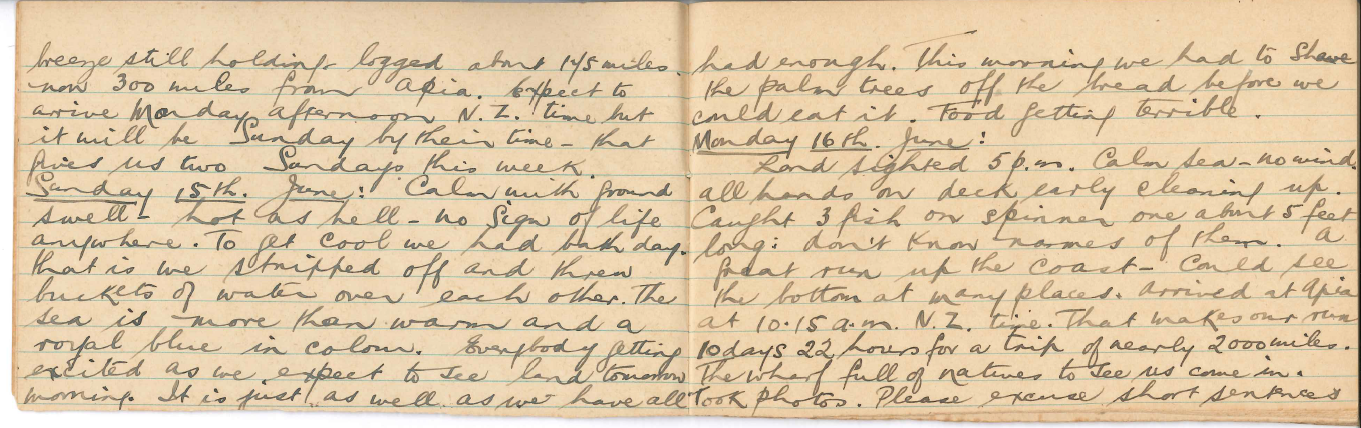 breeze still holding logged about 145 miles.
now 300 miles from Apia. Expect to
arrive Monday afternoon N.Z. time but
it will be Sunday by their time - that
gives us two Sundays this week.
Sunday 15th. June: Calm with ground
swell - hot as hell - no sign of life
anywhere. To get cool we had bath day.
that is we stripped off and threw
buckets of water over each other. The
sea is more than warm and a
royal blue in colour. Everybody getting
excited as we expect to see land tomorrow
morning. It is just as well as we have all
had enough. This morning we had to shave
the palm trees off the bread before we
could eat it. Food getting terrible.
Monday 16th. June:
Land sighted 5 p.m. Calm sea - no wind.
all hands on deck early cleaning up.
Caught 3 fish on spinner one about 5 feet
long: don't know names of them. A
great run up the coast - Could see
the bottom at many places. Arrived at Apia
at 10.15 a.m. N.Z. time. That makes our run
10 days 22 hours for a trip of nearly 2000 miles.
The wharf full of natives to see us come in.
Took photos. Please excuse short sentences